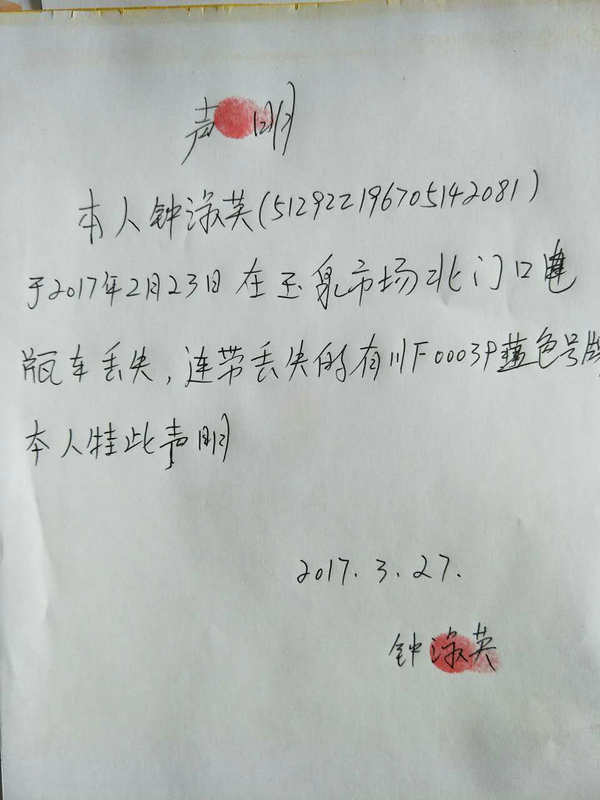 声明
本人钟淑英(512922196705142081)
于2017年2月23日在玉泉市场北门口电
瓶车丢失,连带丢失的有川F0003P蓝色号牌
本人特此声明
2017.3.27.
钟淑英